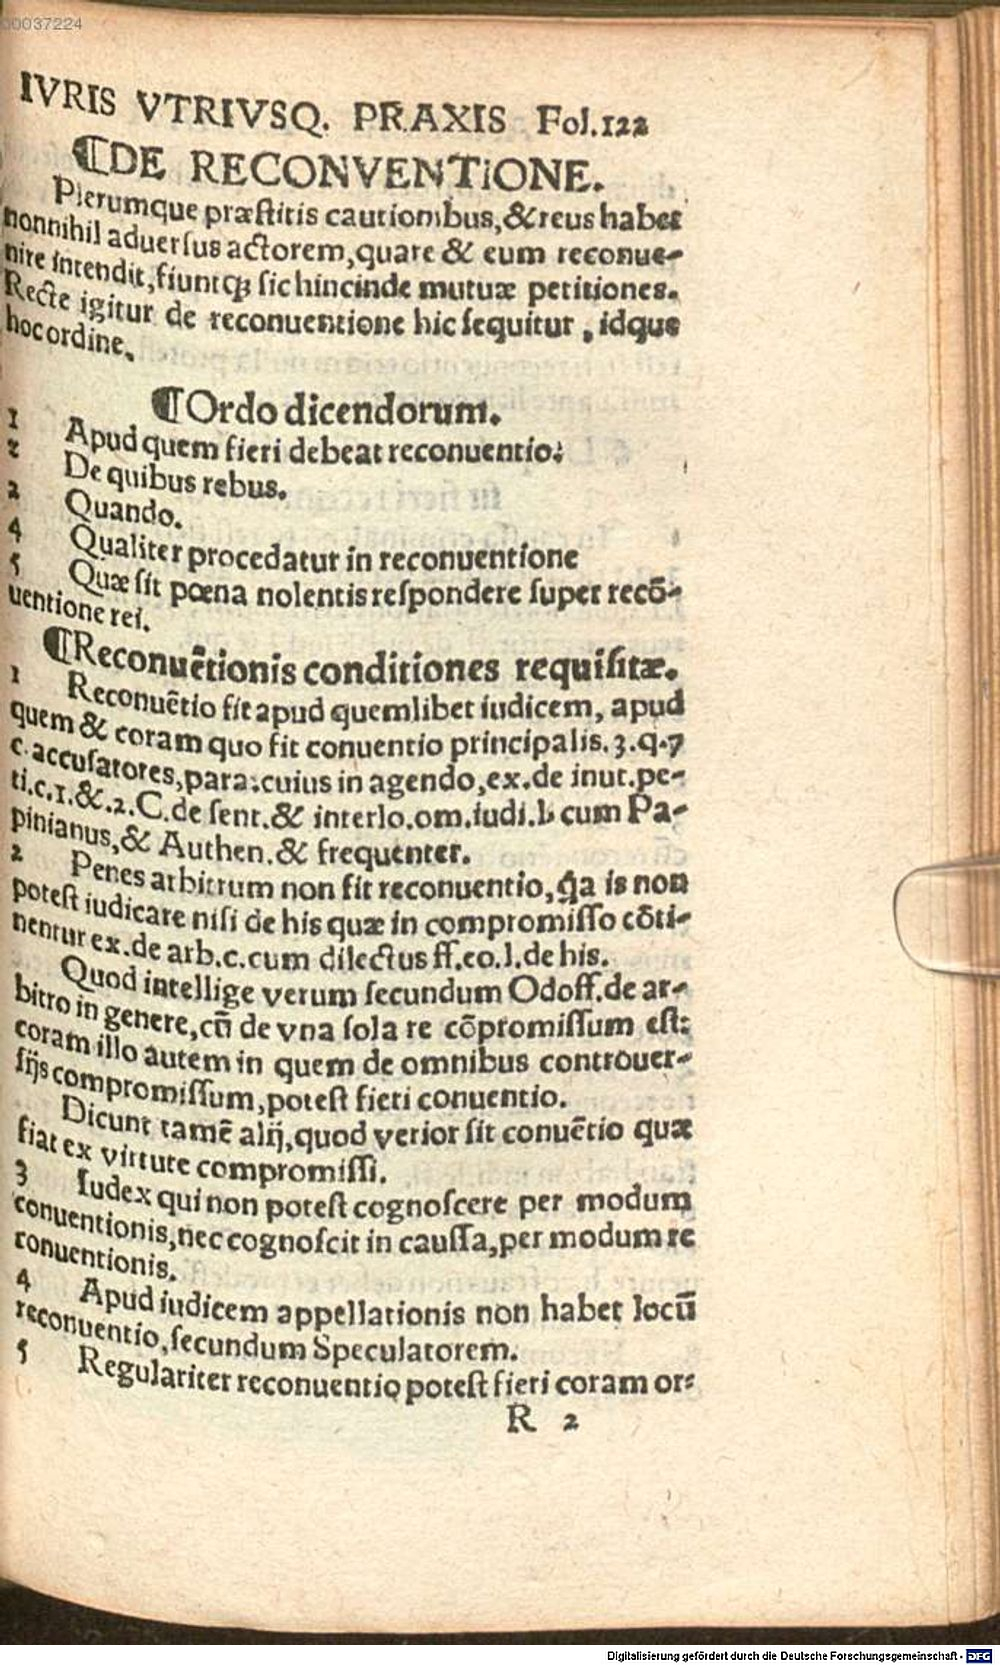 00037224
IVRIS VTRIVSQ. PRAXIS Fol.122
¶DE RECONVENTIONE.
Plerumque præstitis cautionibus,& reus habet
nonnihil aduersus actorem,quare & eum reconue-
nire intendit,fiuntq; sic hincinde mutuæ petitiones.
Recte igitur de reconuentione hic sequitur, idque
hoc ordine.
¶Ordo dicendorum.
1 Apud quem fieri debeat reconuentio:
2 De quibus rebus.
2 Quando.
4 Qualiter procedatur in reconuentione
5 Quæ sit pœna nolentis respondere super recō-
uentione rei.
¶Reconuētionis conditiones requisitæ.
1 Reconuētio fit apud quemlibet iudicem, apud
quem & coram quo fit conuentio principalis. 3.q.7
c.accusatores,para:cuius in agendo,ex.de inut.pe-
ti.c.1.&.2.C.de sent.& interlo.om.iudi.l. cum Pa-
pinianus,& Authen.& frequenter.
2 Penes arbitrum non fit reconuentio,q̄a is non
potest iudicare nisi de his quæ in compromisso cōti-
nentur ex.de arb.c.cum dilectus ff.eo.l.de his.
Quod intellige verum secundum Odoff.de ar-
bitro in genere,cū de vna sola re cōpromissum est:
coram illo autem in quem de omnibus controuer-
sijs compromissum,potest fieri conuentio.
Dicunt tamē alij,quod verior sit conuētio quæ
fiat ex virtute compromissi.
3 Iudex qui non potest cognoscere per modum
conuentionis,nec cognoscit in caussa,per modum re
conuentionis.
4 Apud iudicem appellationis non habet locū
reconuentio,secundum Speculatorem.
5 Regulariter reconuentio potest fieri coram or:
R 2
Digitalisierung gefördert durch die Deutsche Forschungsgemeinschaft - DFG